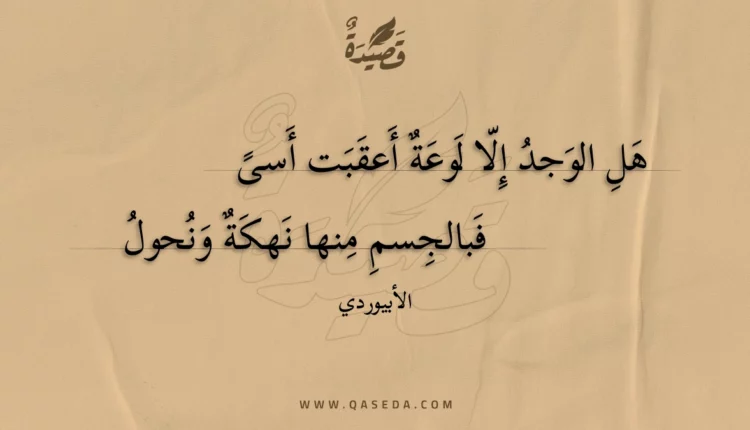 قَصِيدَةٌ
هَلِ الوَجدُ إِلّا لَوعَةٌ أَعقَبَت أَسىً
فَبالجِسمِ مِنها نَهكَةٌ وَنُحولُ
الأبيوردي
WWW.QASEDA.COM